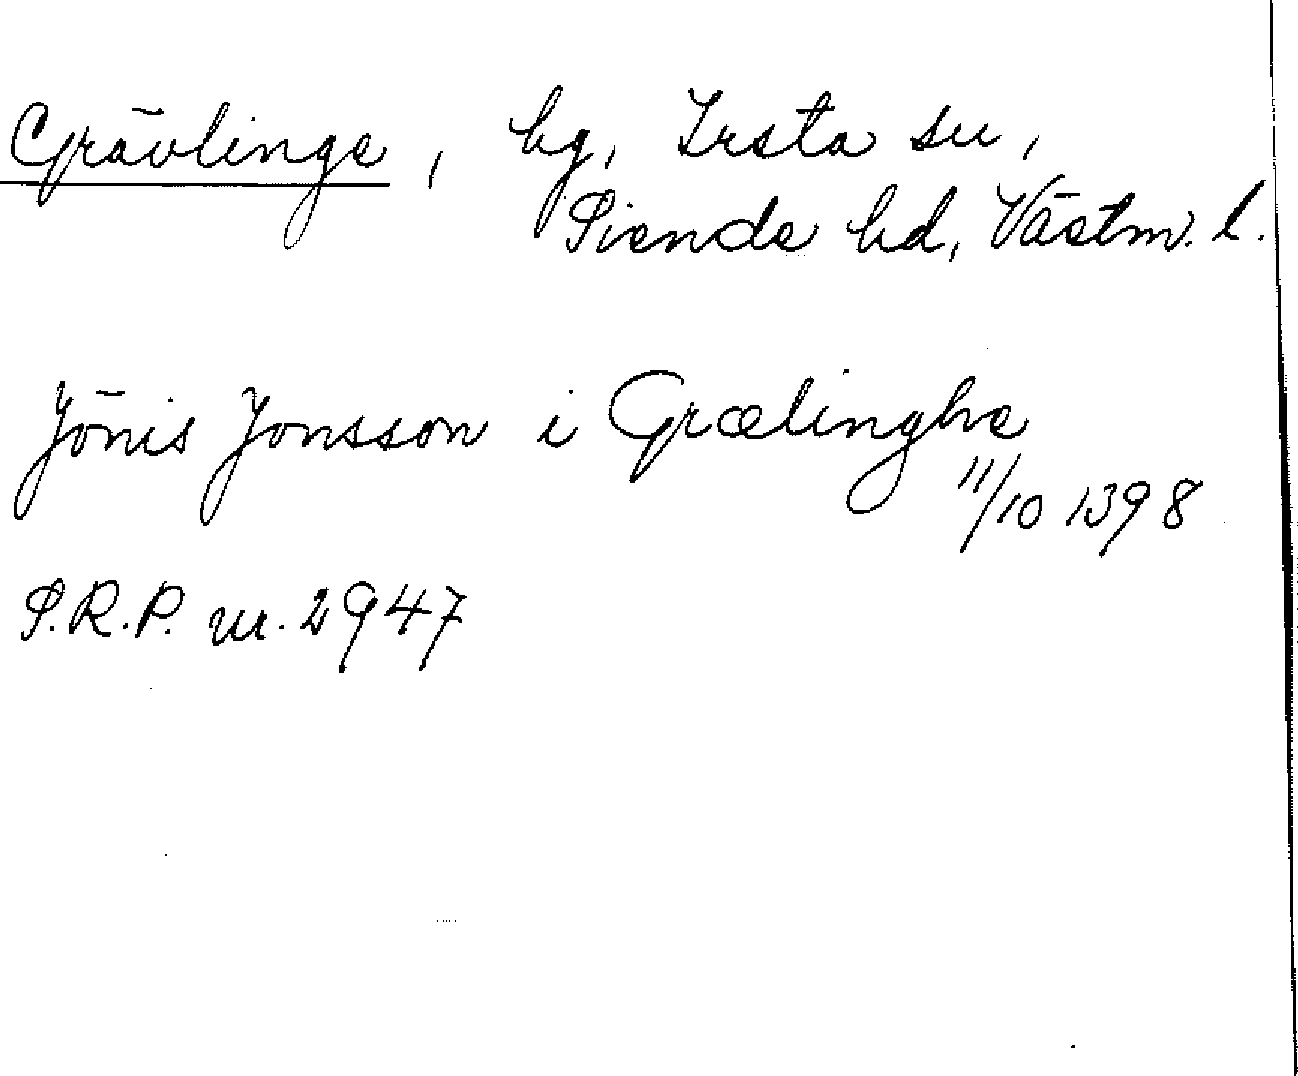 Grävlinge, by, Irsta sn,
Siende hd, Västm. l.
Jönis Jonsson i Grælinghe
11/10 1398
S.R.P. nr. 2947